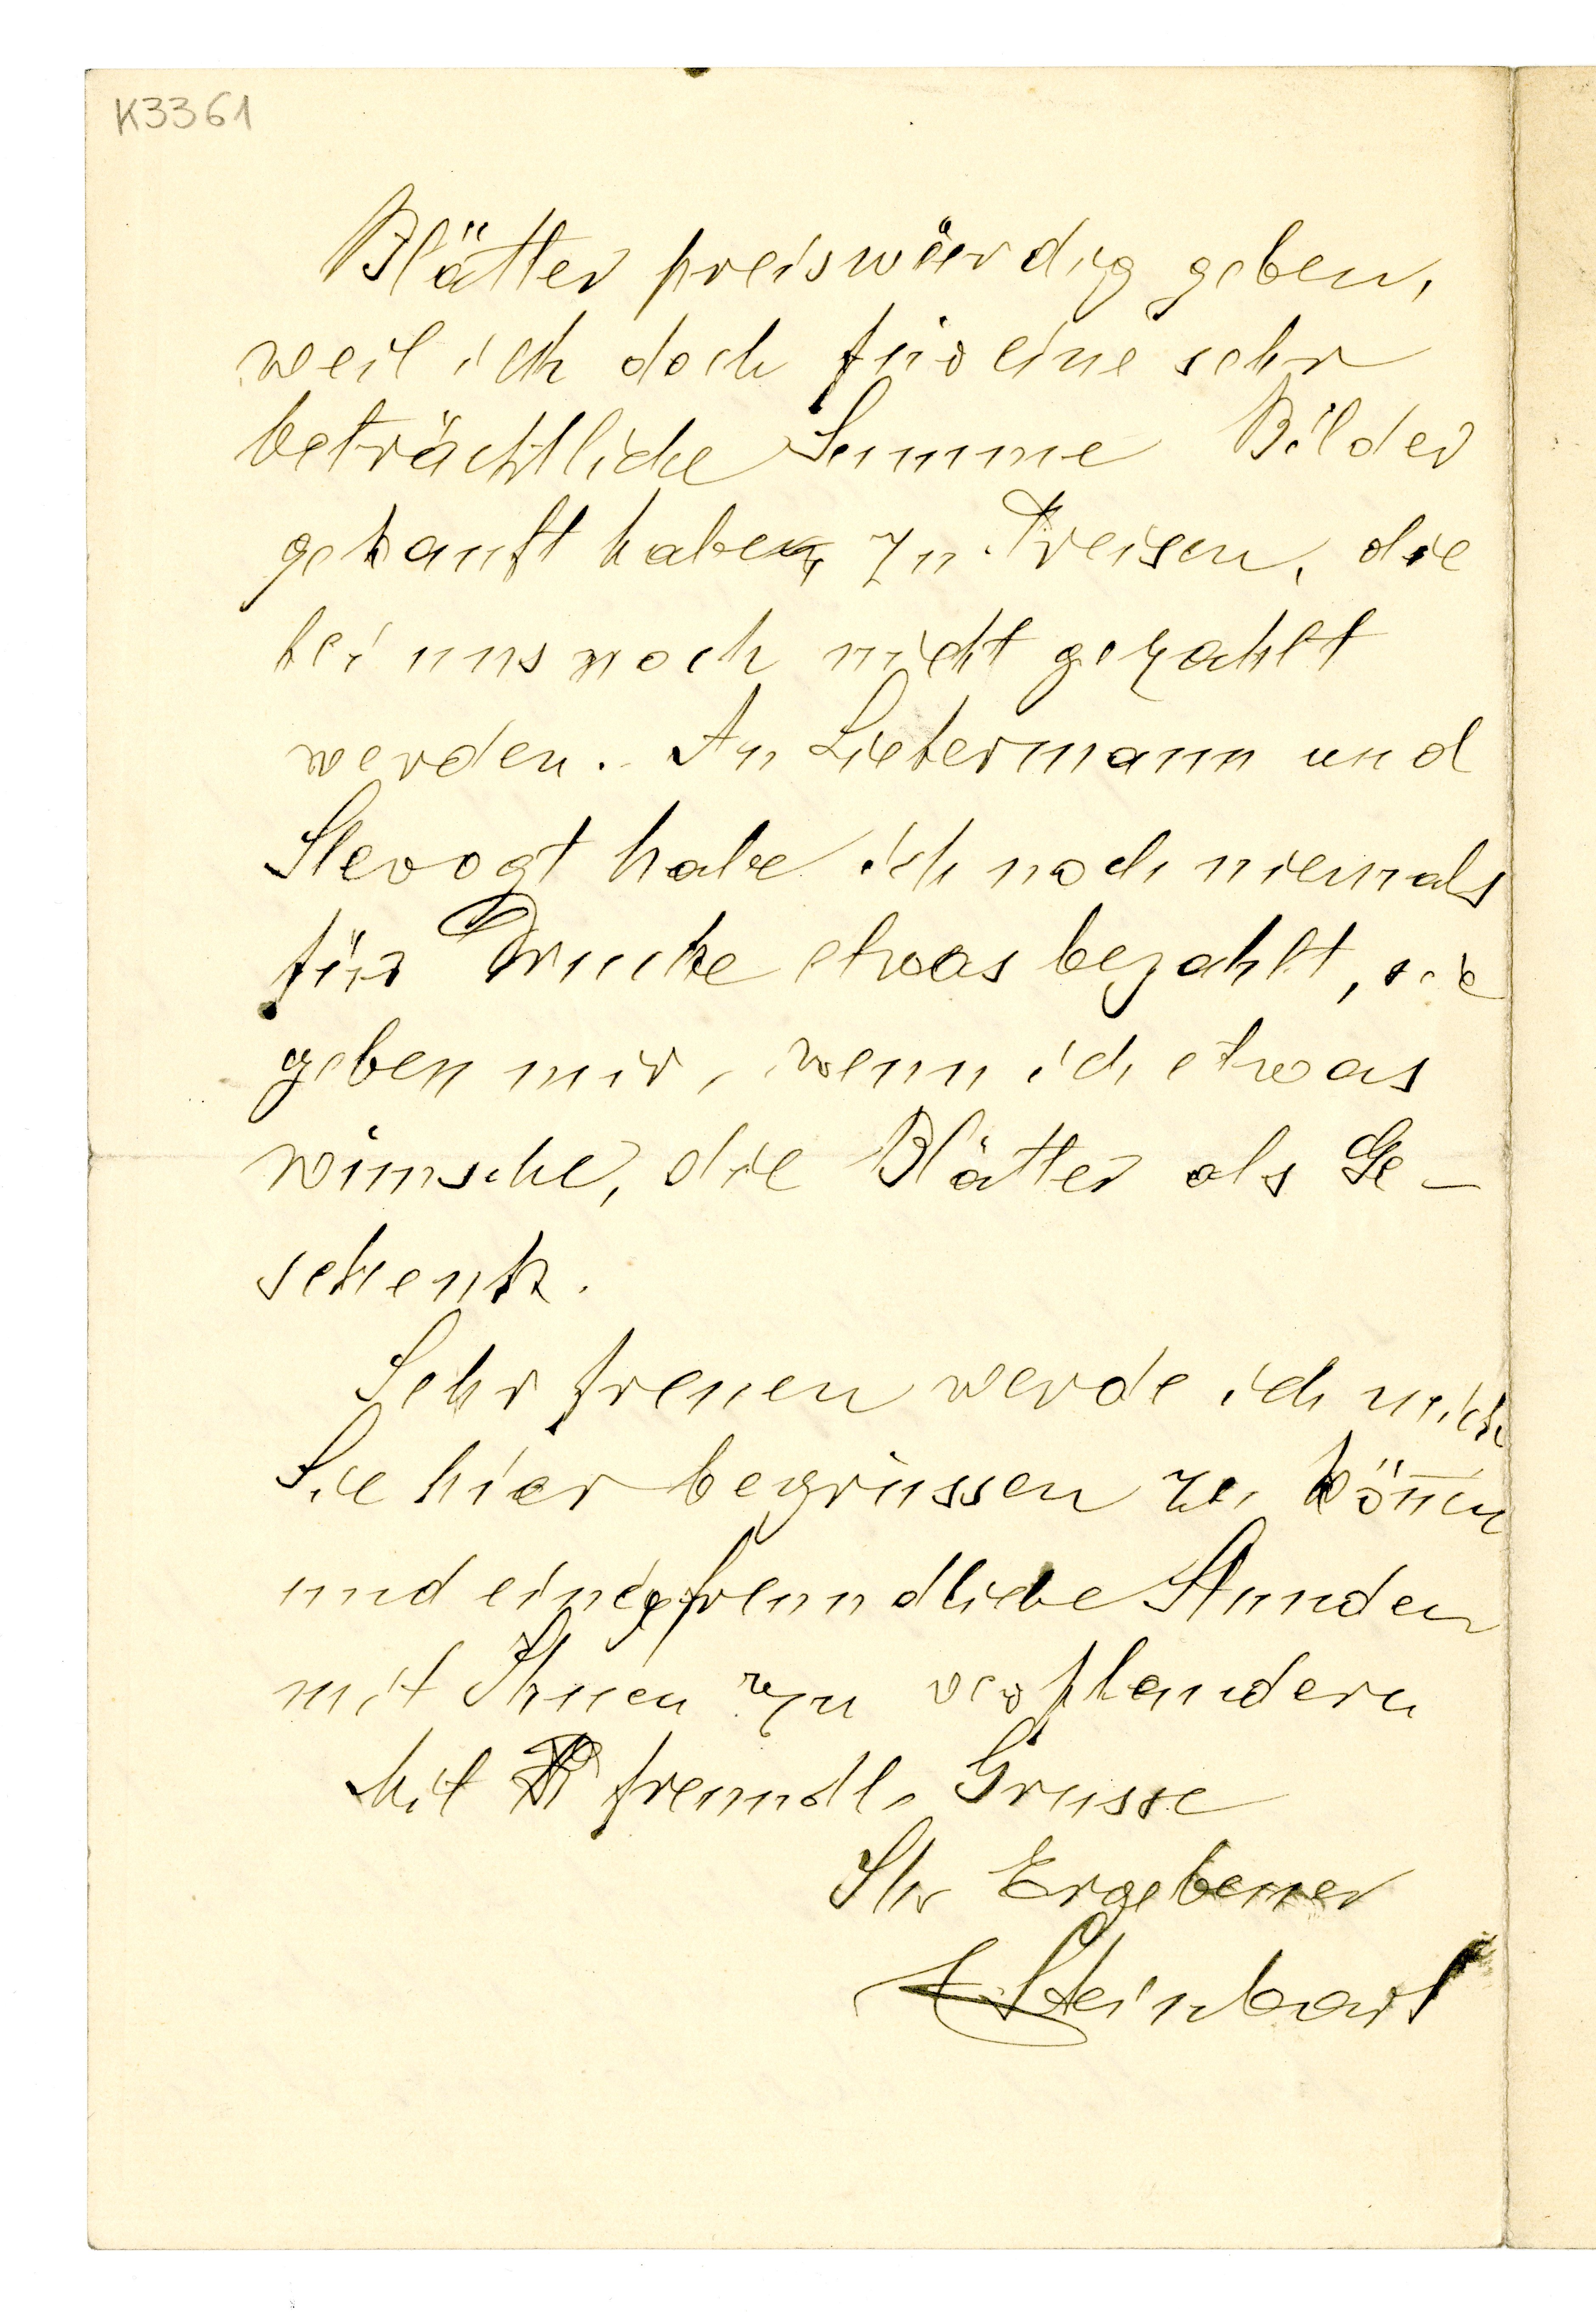 K3361
Blätter preiswürdig geben,
weil ich doch für eine sehr
beträchtliche Summe Bilder
gekauft habe, zu Preisen, die
bei uns noch nicht gezahlt
werden. An Liebermann und
Slevogt habe ich noch niemals
für Drucke etwas bezahlt, sie
geben mir, wenn ich etwas
wünsche, die Blätter als Ge-
schenk.
Sehr freuen werde ich mich
Sie hier begrüssen zu kön̅en
und einige freundliche Stunden
mit Ihnen zu verplaudern
Mit freundl. Grusse
Ihr Ergebener
Steinbart